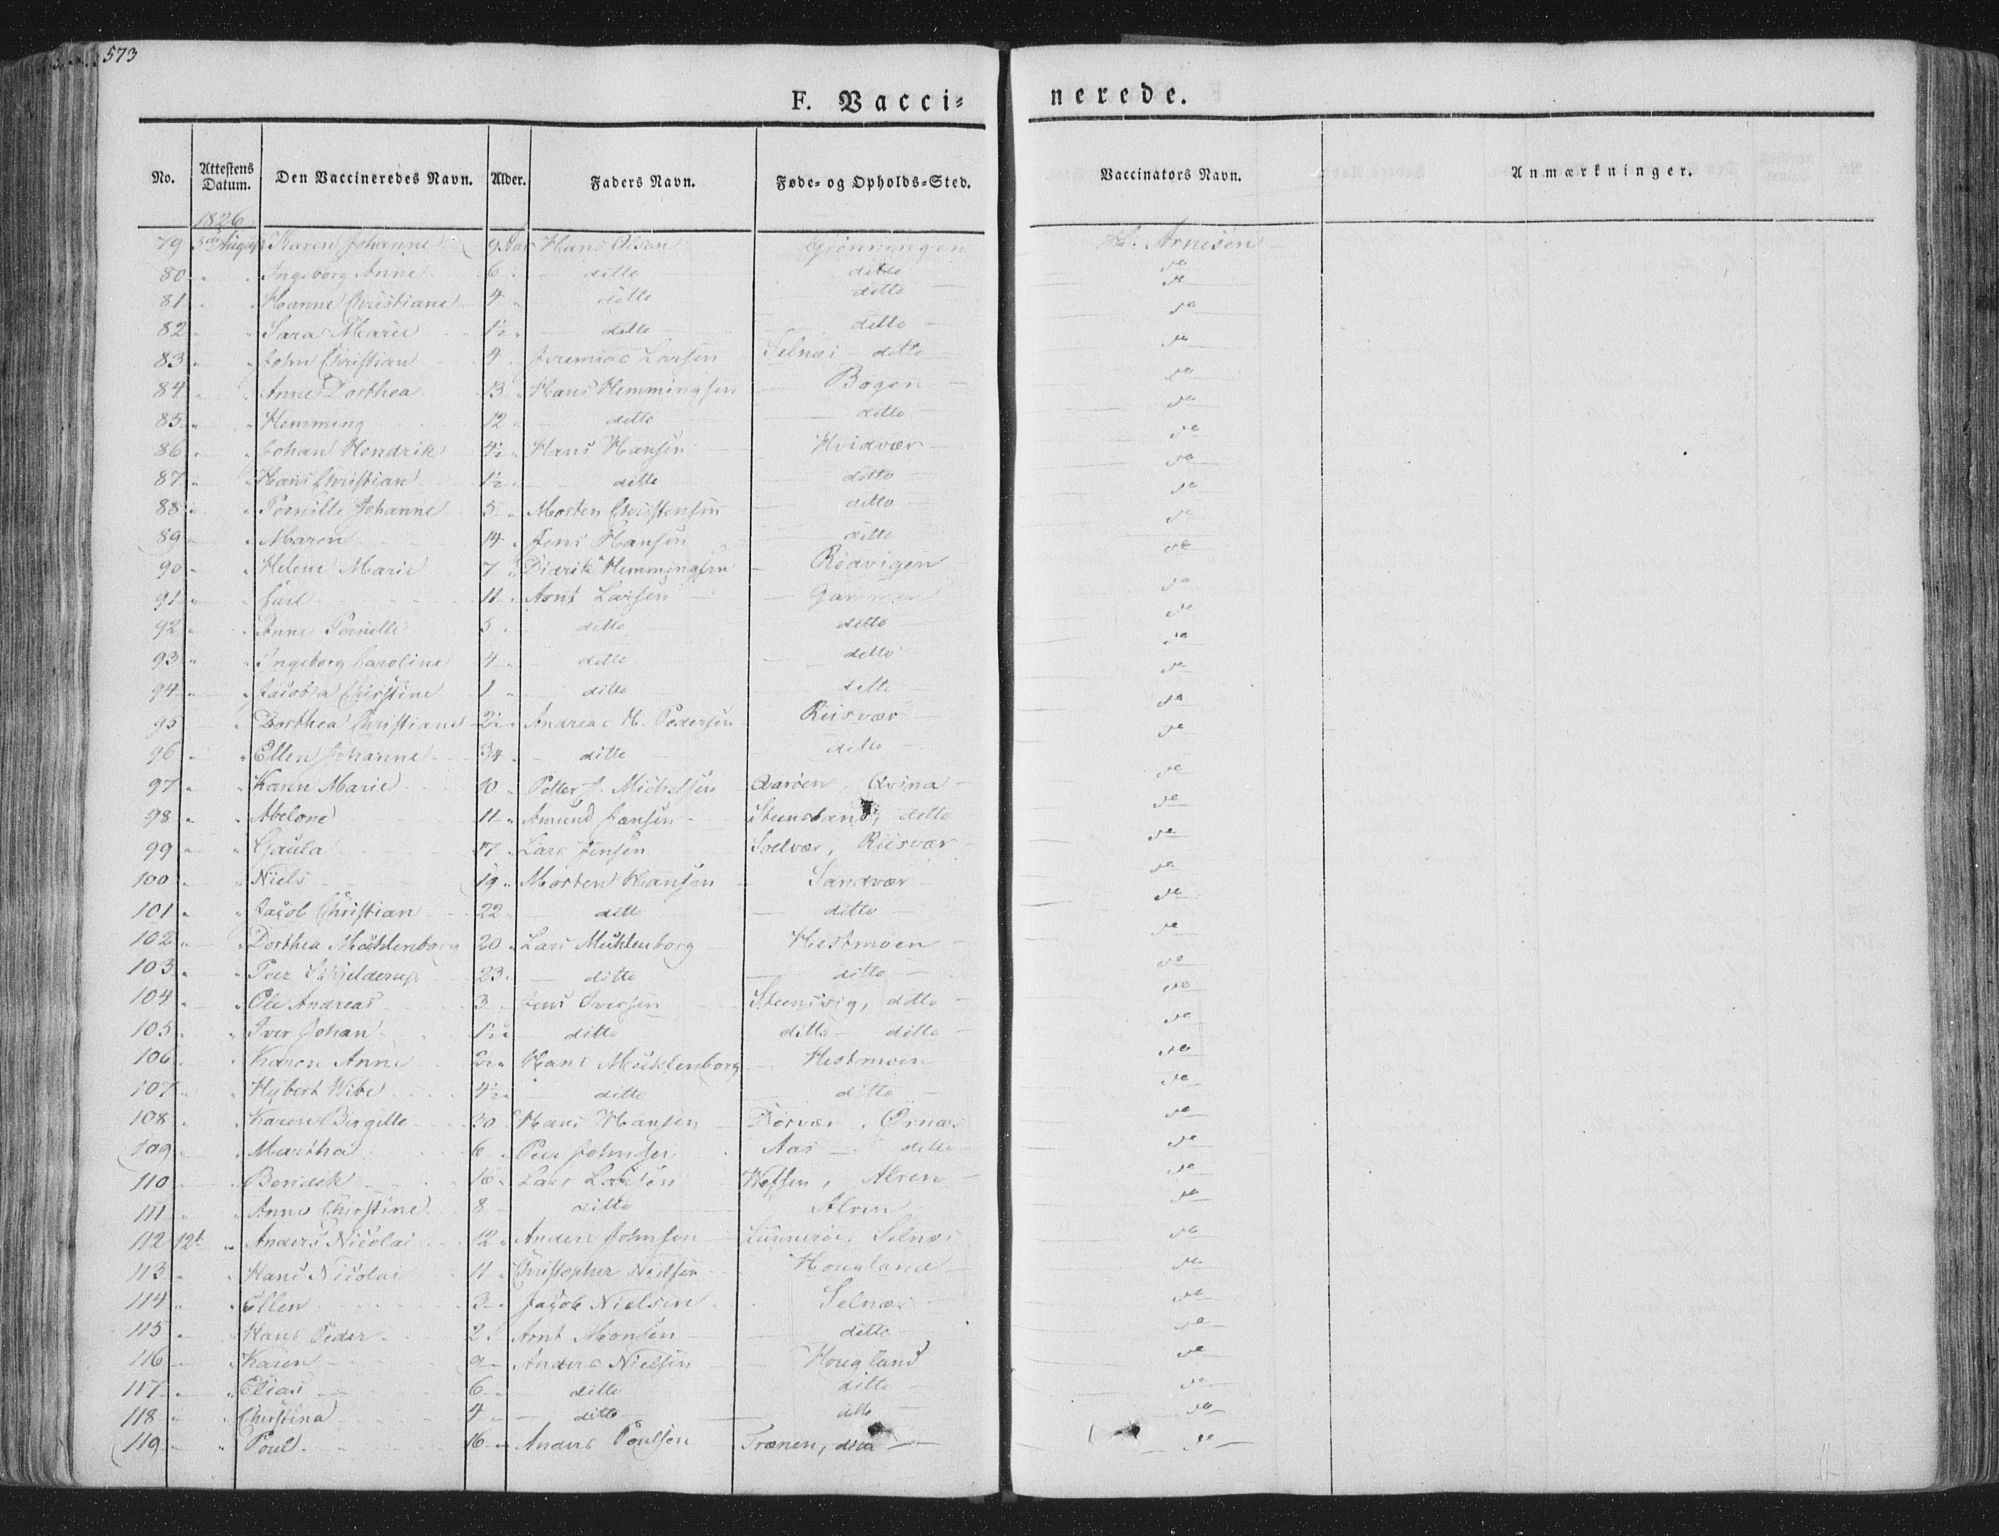 573
F. Vacci-nerede.
No. Attestens Datum. Den Vaccineredes Navn. Alder. Faders Navn. Føde- og Opholds-Sted. Vaccinators Navn. Anmærkninger.
1826
79 August Karen Johanne 9 Aar Hans Olsen Grønningen Arnesen
80 " " Ingeborg Anne 6 " ditto ditto
81 " " Hanne Christiane 4 " ditto ditto
82 " " Sara Marie 1½ " ditto ditto
83 " " John Christian 4 " Jeremias Larsen Selnæs ditto
84 " " Anne Dorthea 13 " Hans Hemmingsen Bogen
85 " " Hemming 12 " ditto ditto
86 " " Johan Hendrik 4½ " Hans Hansen Hvidvær
87 " " Hans Christian 1½ " ditto ditto
88 " " Pernille Johanne 5 " Morten Christensen ditto
89 " " Maren 14 " Jens Hansen ditto
90 " " Helene Marie 7 " Didrik Hemmingsen Rødvigen
91 " " Carl 11 " Arnt Larsen
92 " " Anne Pernille 5 " ditto ditto
93 " " Ingeborg Caroline 4 " ditto ditto
94 " " Jacobia Christine 1 " ditto ditto
95 " Dorthea Christiane 2½ " Andreas H. Pedersen Riisvær
96 " " Ellen Johanne " ditto ditto
97 " " Karen Marie 10 " Petter J. Michelsen Qvarøen, Qvina
98 " " Abelone 11 " Amund Jansen Steensland, ditto
99 " " Gjauta 17 " Lars Jensen Soelvær, Riisvær
100 " " Niels 19 " Morten Hansen Sandvær
101 " " Jacob Christian 22 " ditto ditto
102 " " Dorthea Mechlenborg 20 " Lars Mechlenborg Hestmoen
103 " " Peer Schjelderup 23 " ditto ditto
104 " " Ole Andreas 3 " Jens Iversen Steensvig, ditto
105 " " Iver Johan 1½ " ditto ditto ditto
106 " " Karen Anne 2½ " Hans Mechlenborg Hestmoen
107 " " Hybert Wibe 4½ " ditto ditto
108 " " Karen Birgitte 30 " Hans Hansen Dørvær, Ørnæs
109 " " Martha 6 " Peer Johnsen Aas ditto
110 " " Bendik 16 " Lars Larsen Wefsen, Alren
111 " " Anne Christine 8 " ditto Alren
112 12te " Anders Nicolai 12 " Anders Johnsen Selnæs
113 " " Hans Nicolai 11 " Christopher Nielsen Hougland
114 " " Ellen 3 " Jacob Nielsen Selnæs
115 " " Hans Peder 2 " Arnt Monsen ditto
116 " " Karen 9 " Anders Nielsen Hougland
117 " " Elias 6 " ditto ditto
118 " " Christina 4 " ditto ditto
119 " " Poul 16 " Anders Poulsen Trænen, ditto